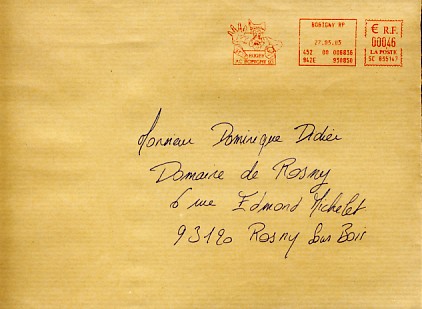 BOBIGNY RP
27.05.05
452 00 006036
942E 930050
€ R.F.
00046
LA POSTE
SC 035147
AC BOBIGNY 93
Monsieur Dominique Didier
Domaine de Rosny
6 rue Edmond Michelet
93120 Rosny Sous Bois